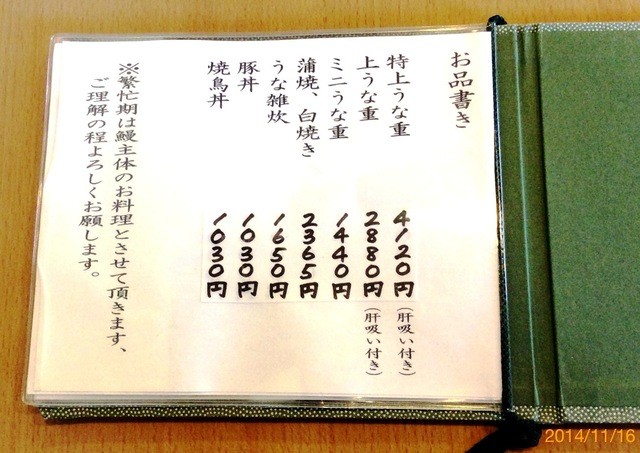 お品書き
特上うな重 4120円(肝吸い付き)
上うな重 2880円(肝吸い付き)
ミニうな重 1440円
蒲焼、白焼き 2365円
うな雑炊 1650円
豚丼 1030円
焼鳥丼 1030円
※繁忙期は鰻主体のお料理とさせて頂きます、
ご理解の程よろしくお願します。
2014/11/16